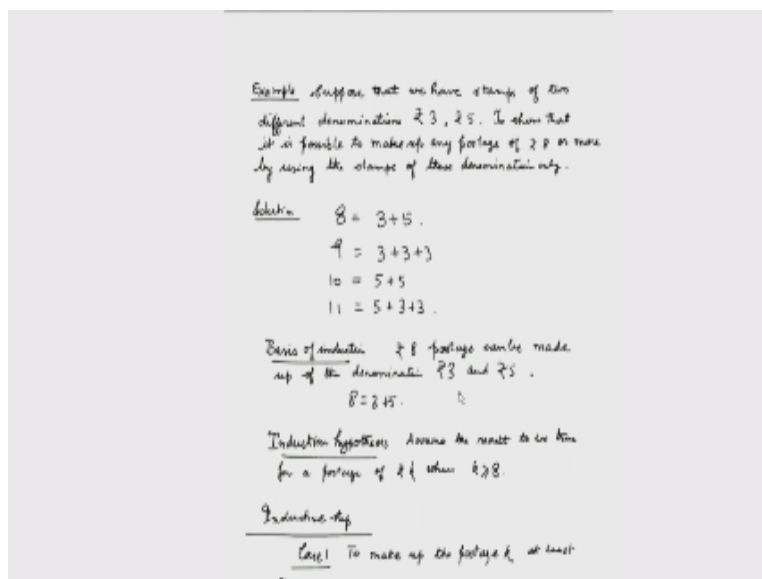 Example Suppose that we have stamps of two
different denominations ₹3, ₹5. To show that
it is possible to make up any postage of ₹8 or more
by using the stamps of these denomination only.
Solution 8 = 3+5.
9 = 3+3+3
10 = 5+5
11 = 5+3+3.
Basis of induction ₹8 postage can be made
up of the denomination ₹3 and ₹5.
8=3+5.
Induction hypothesis Assume the result to be true
for a postage of ₹k where k≥8.
Inductive step
Case 1 To make up the postage k, at least